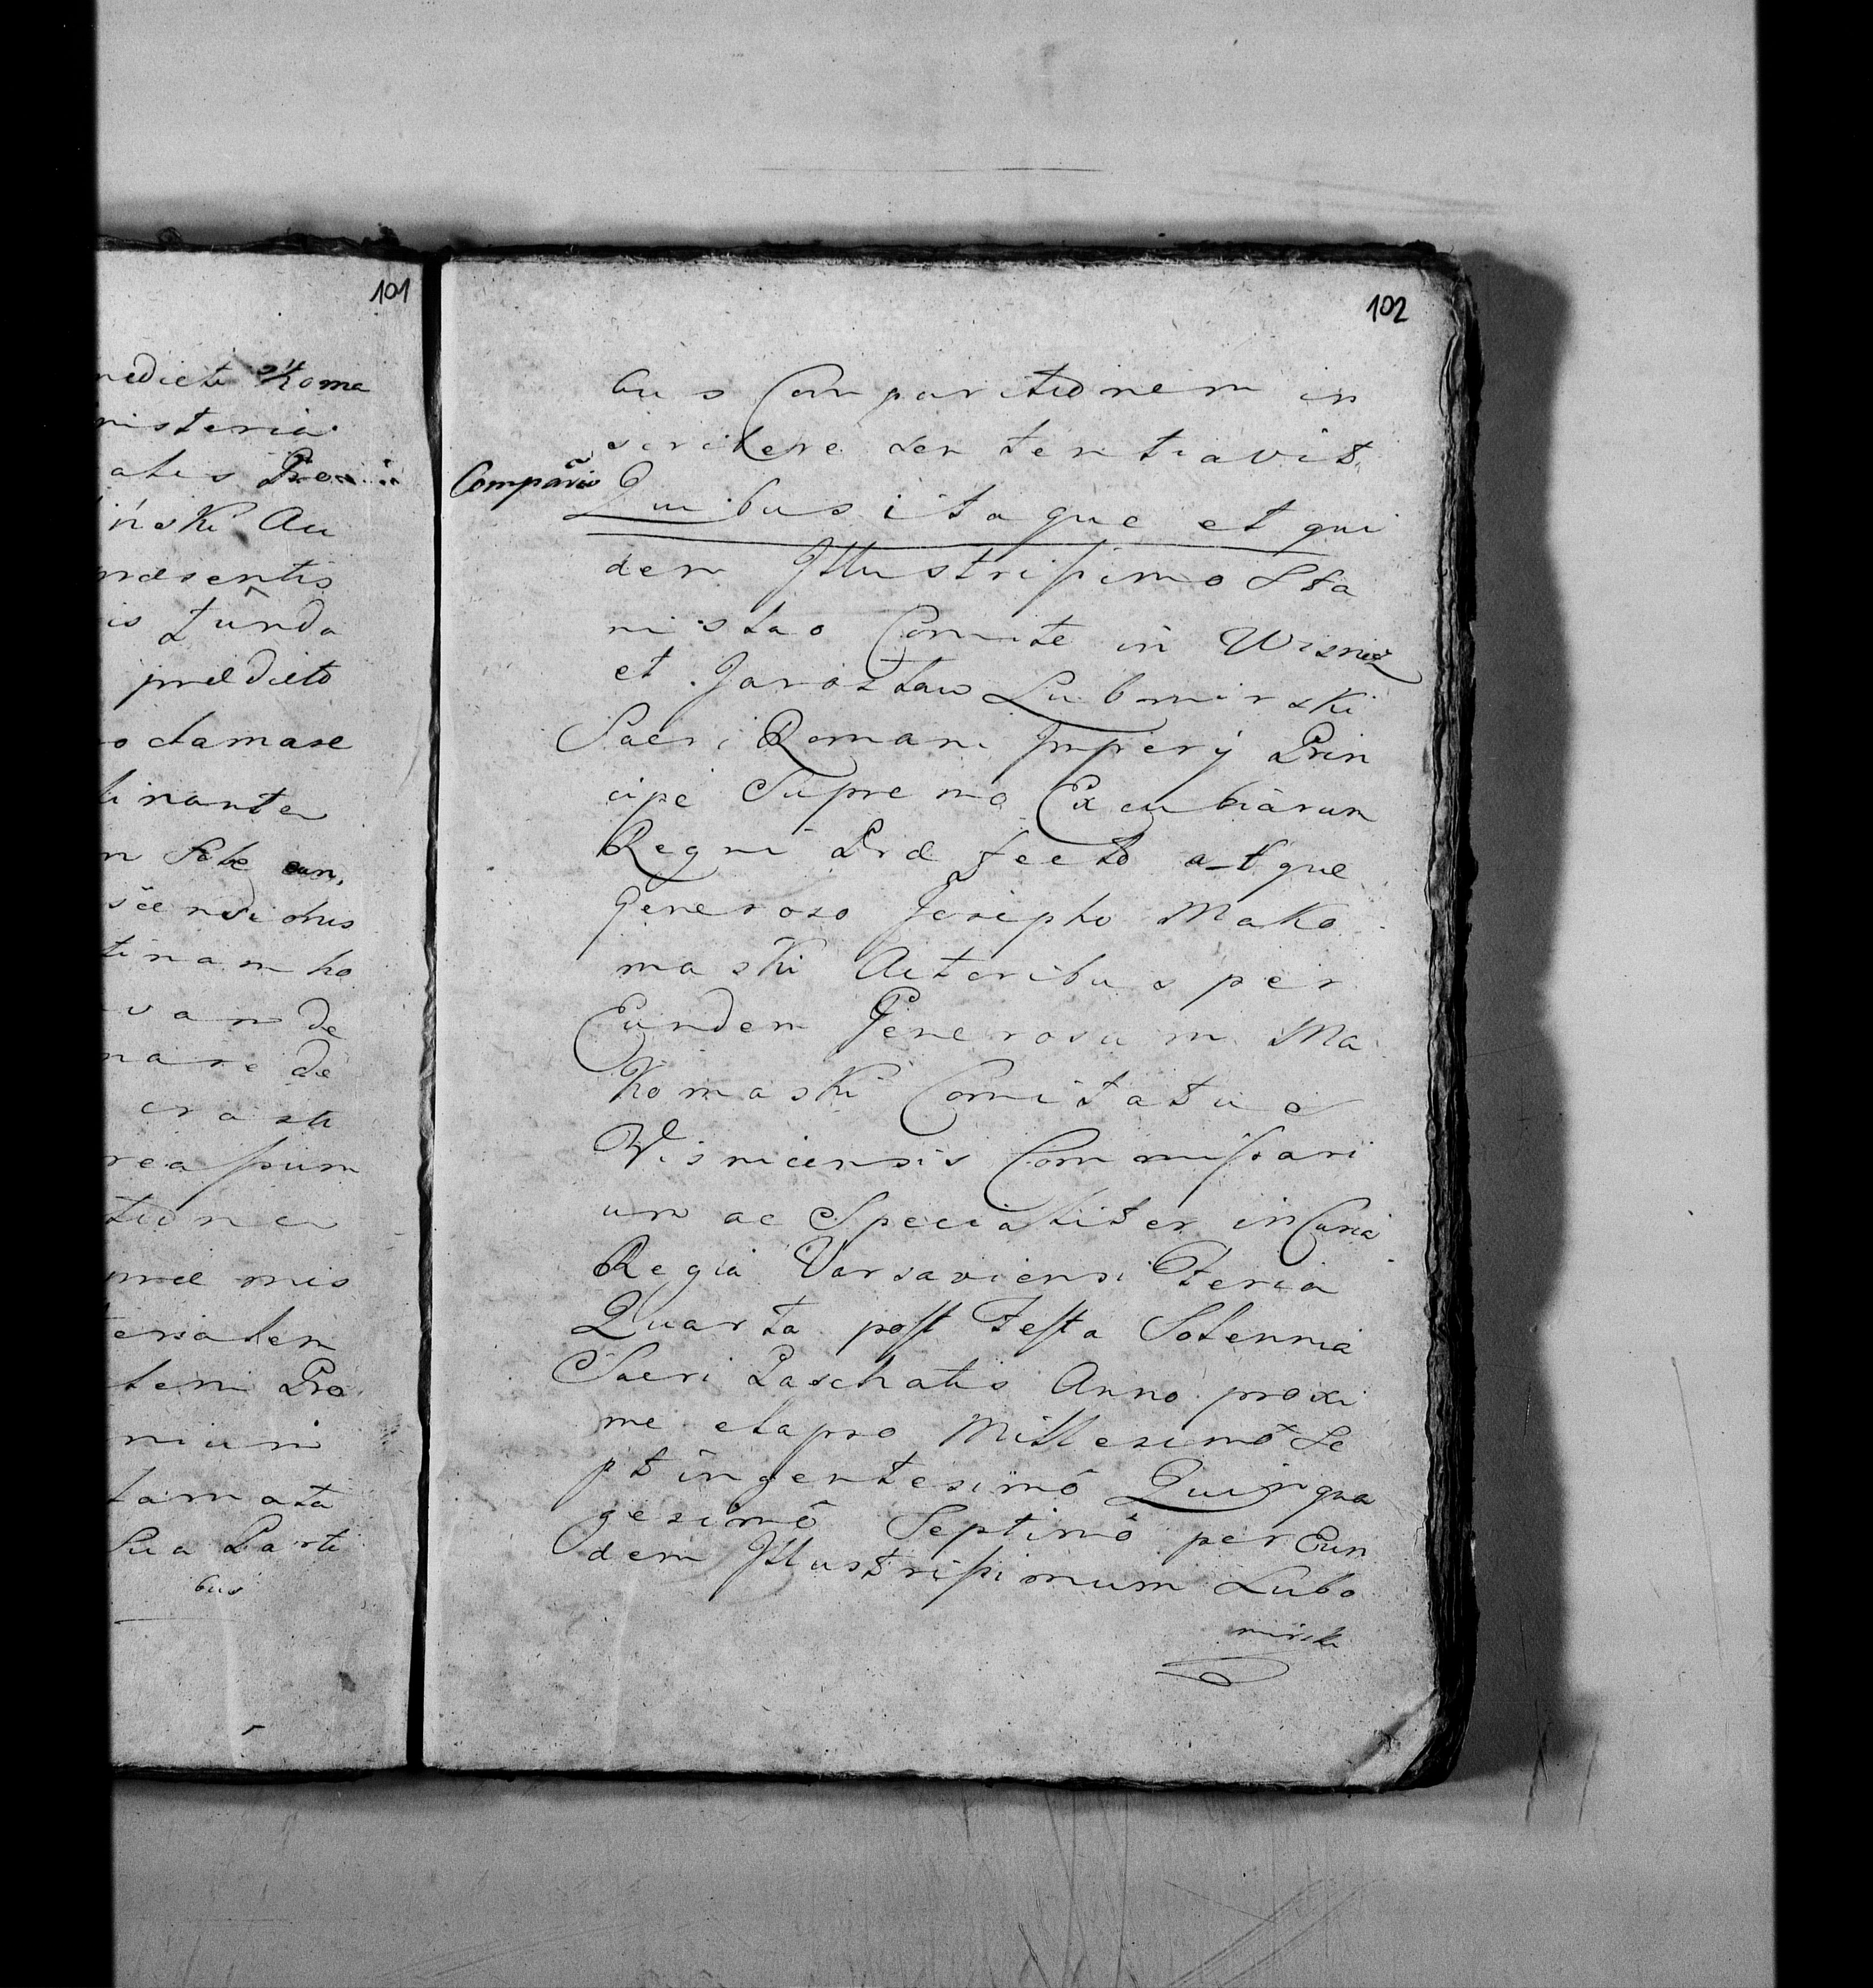 101
nedicti Roma
nisteria
ales
ński Au
præsentis
is Funda
prædicto
o clamare
linante
n
tinam ho
van de
nare de
tione
præ mis
teni Pro
nium
Sua Parti
bus
102
bus Comparitionem in
scribere sententiavit
Compario
Quibus itaque et qui
dem Illustrissimo Sta
nislao Comite in Wisnicz
et Jarosław Lubomirski
Sacri Romani Imperÿ Prin
cipe Supremo Excubiarum
Regni Præfecto atque
Generoso Josepho Mako
maski Actoribus per
Eundem Generosum Ma
komaski Comitatus
Wisnicensis Commissari
um ac Specialiter in Curia
Regia Varsaviensi Feria
Quarta post Festa Solennia
Sacri Paschatis Anno proxi
me elapso Millesimô Se
ptingentesimô Quinqua
gesimô Septimô per Eun
dem Illustrissimum Lubo
mirski